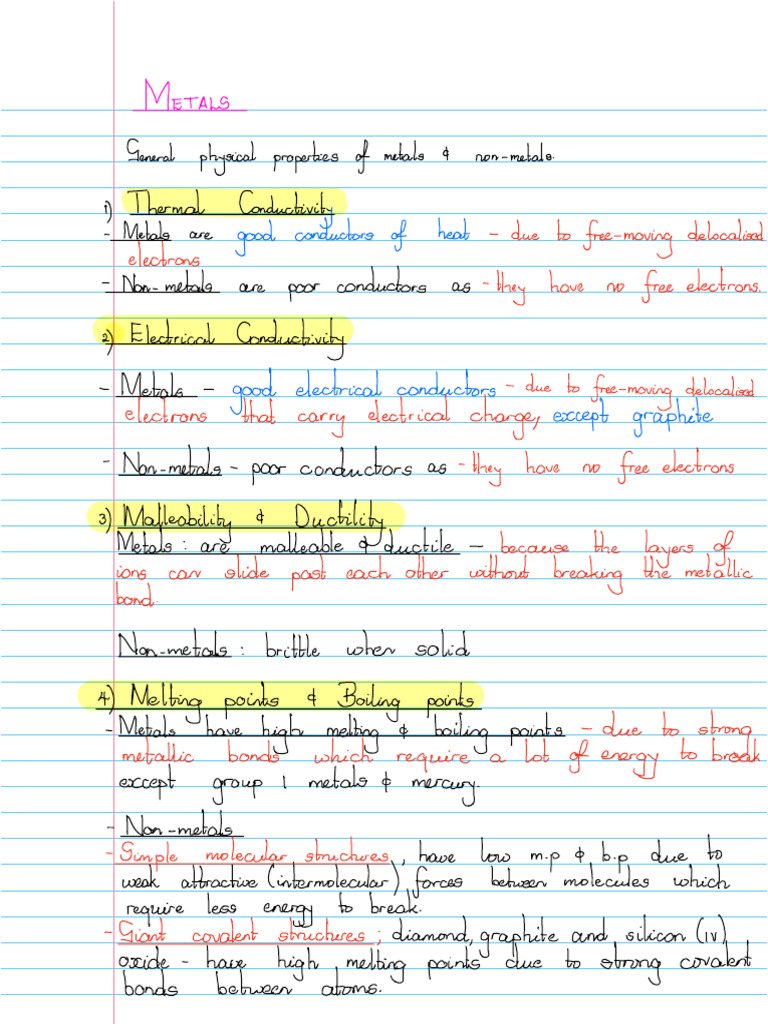 METALS
General physical properties of metals & non-metals.
1) Thermal Conductivity
- Metals are good conductors of heat - due to free-moving delocalised
electrons
- Non-metals are poor conductors as - they have no free electrons.
2) Electrical Conductivity
- Metals - good electrical conductors - due to free-moving delocalised
electrons that carry electrical charge, except graphite
- Non-metals - poor conductors as - they have no free electrons
3) Malleability & Ductility
Metals : are malleable & ductile - because the layers of
ions can slide past each other without breaking the metallic
bond.
Non-metals : brittle when solid
4) Melting points & Boiling points
- Metals have high melting & boiling points - due to strong
metallic bonds which require a lot of energy to break
except group 1 metals & mercury.
- Non-metals
- Simple molecular structures, have low m.p & b.p due to
weak attractive (intermolecular) forces between molecules which
require less energy to break.
- Giant covalent structures; diamond, graphite and silicon (iv)
oxide - have high melting points due to strong covalent
bonds between atoms.